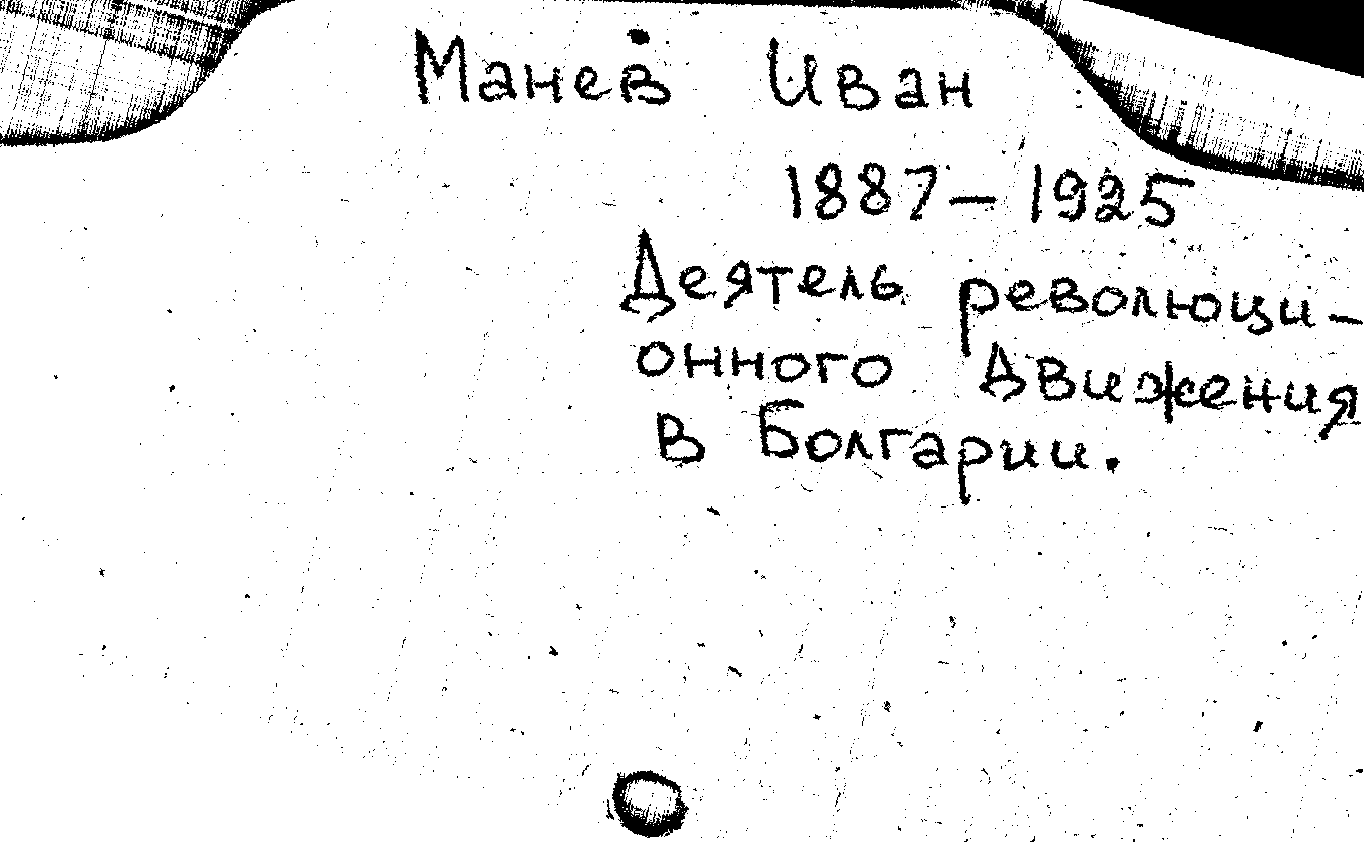 Манев Иван
1887 – 1925
Деятель революци-
онного движения
в Болгарии.